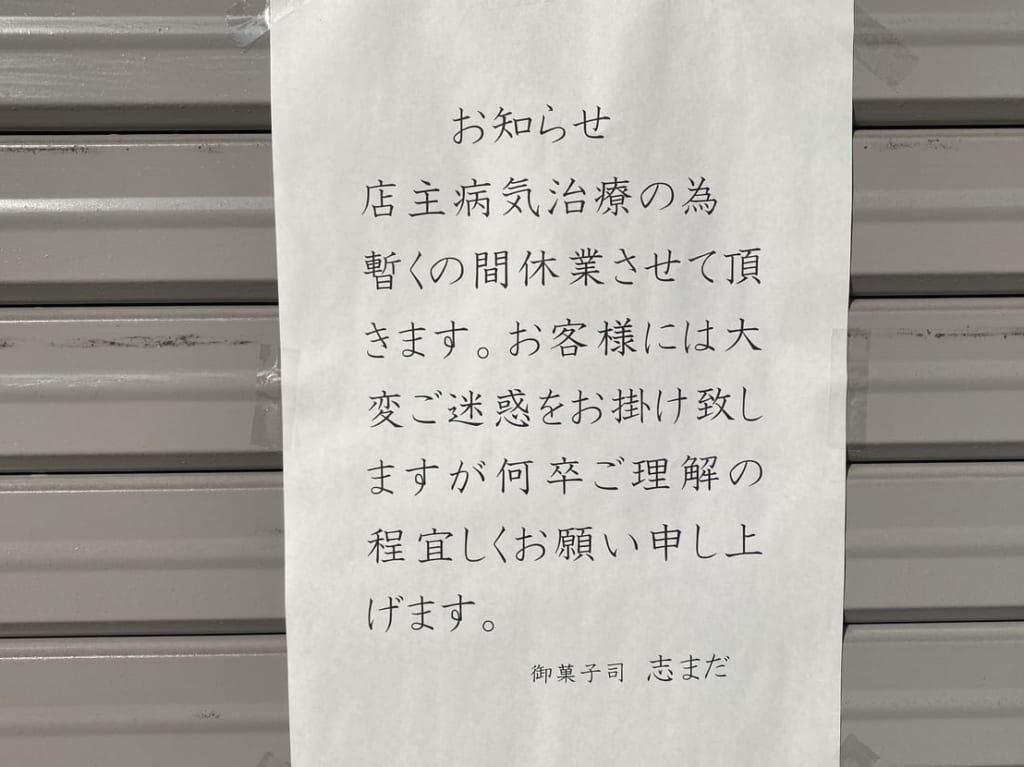 お知らせ
店主病気治療の為
暫くの間休業させて頂
きます。お客様には大
変ご迷惑をお掛け致し
ますが何卒ご理解の
程宜しくお願い申し上
げます。
御菓子司 志まだ